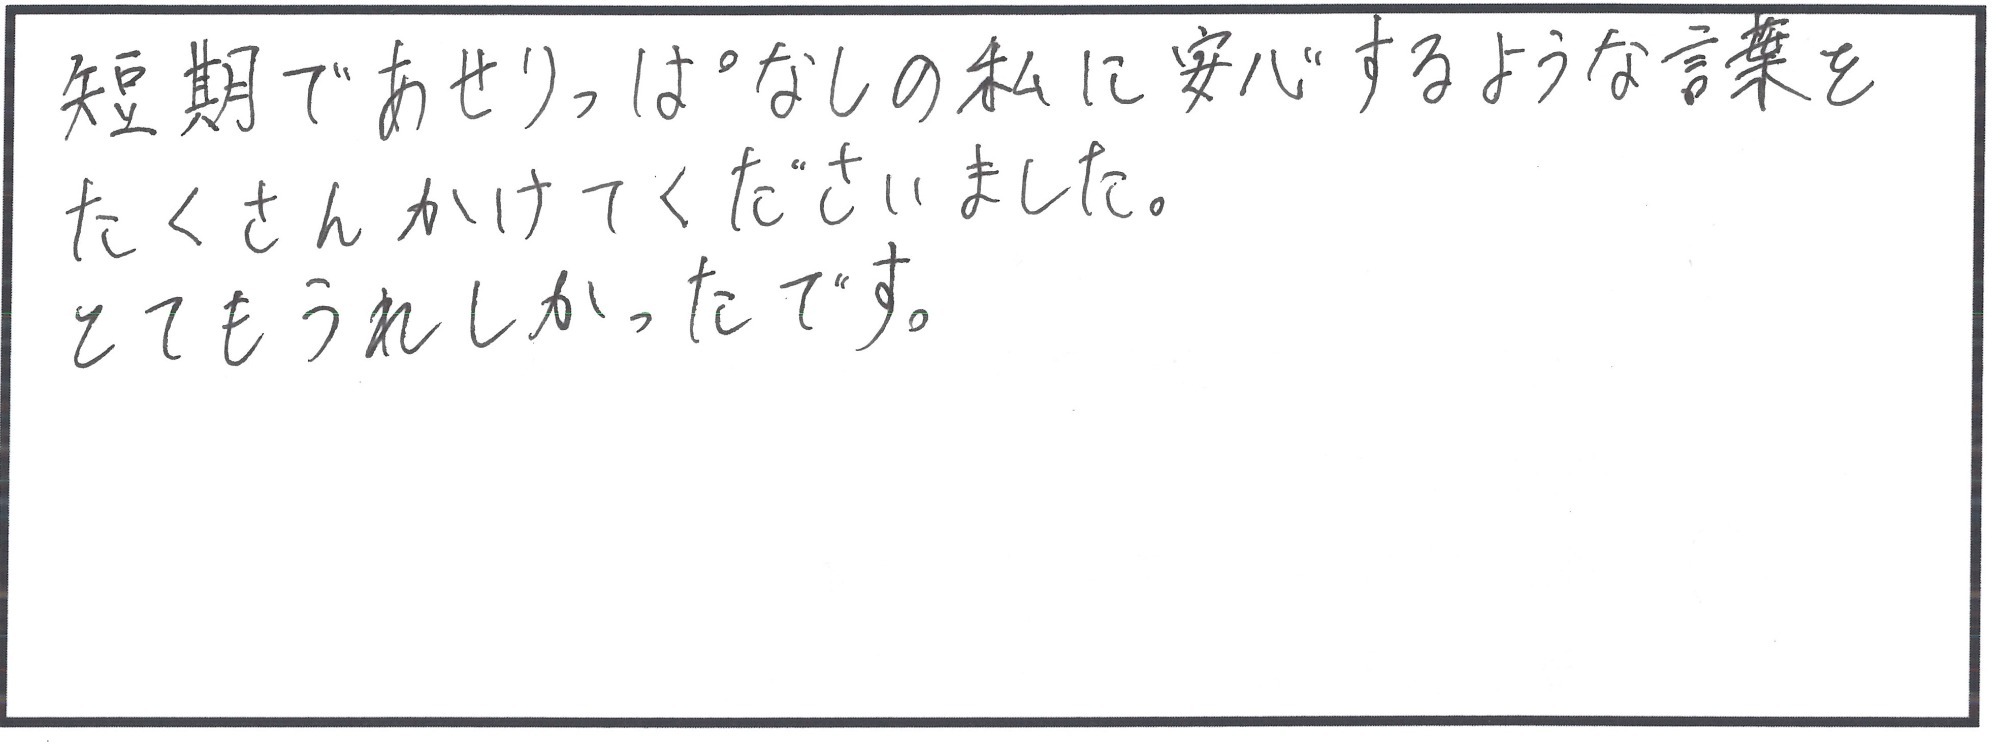 短期であせりっぱなしの私に安心するような言葉を
たくさんかけてくださいました。
とてもうれしかったです。